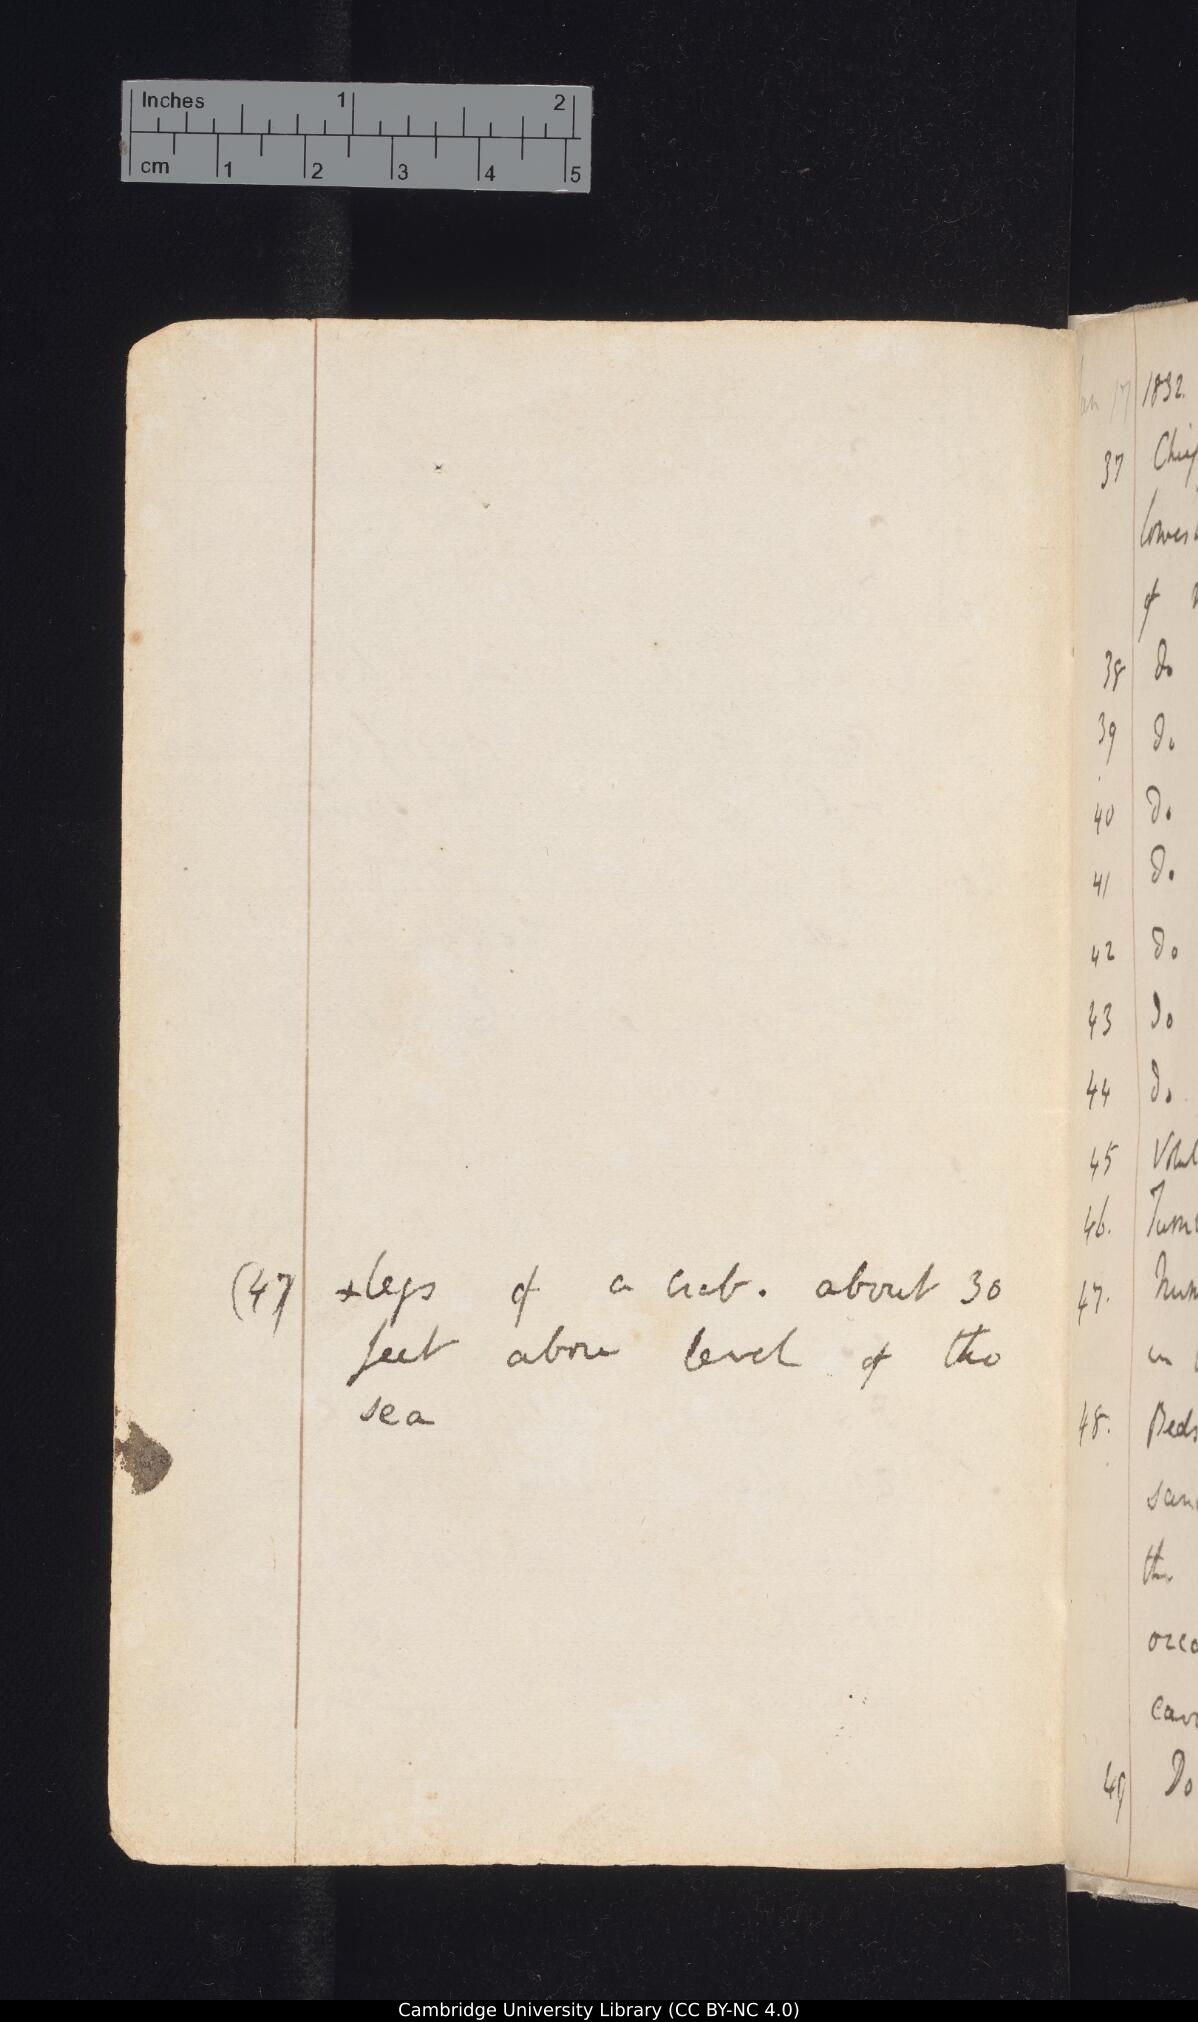 Inches 1 2
cm 1 2 3 4 5
(47) +legs of a crab. about 30
feet above level of the
sea
17 1832.
37
of
38 Do
39 Do
40 Do
41 Do
42 Do
43 Do
44 Do
45
46.
47.
in
48. Beds
the
49 Do
Cambridge University Library (CC BY-NC 4.0)